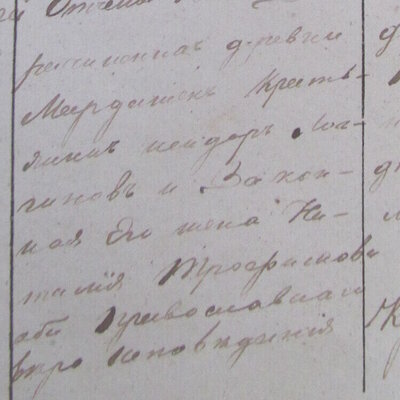 деревни
Мардатенъ Кресть-
янинъ Исидоръ Лог-
гиновъ и Закон-
ная Его жена На-
талія Трофимова
оба Православнаго
вѣроисповѣданія